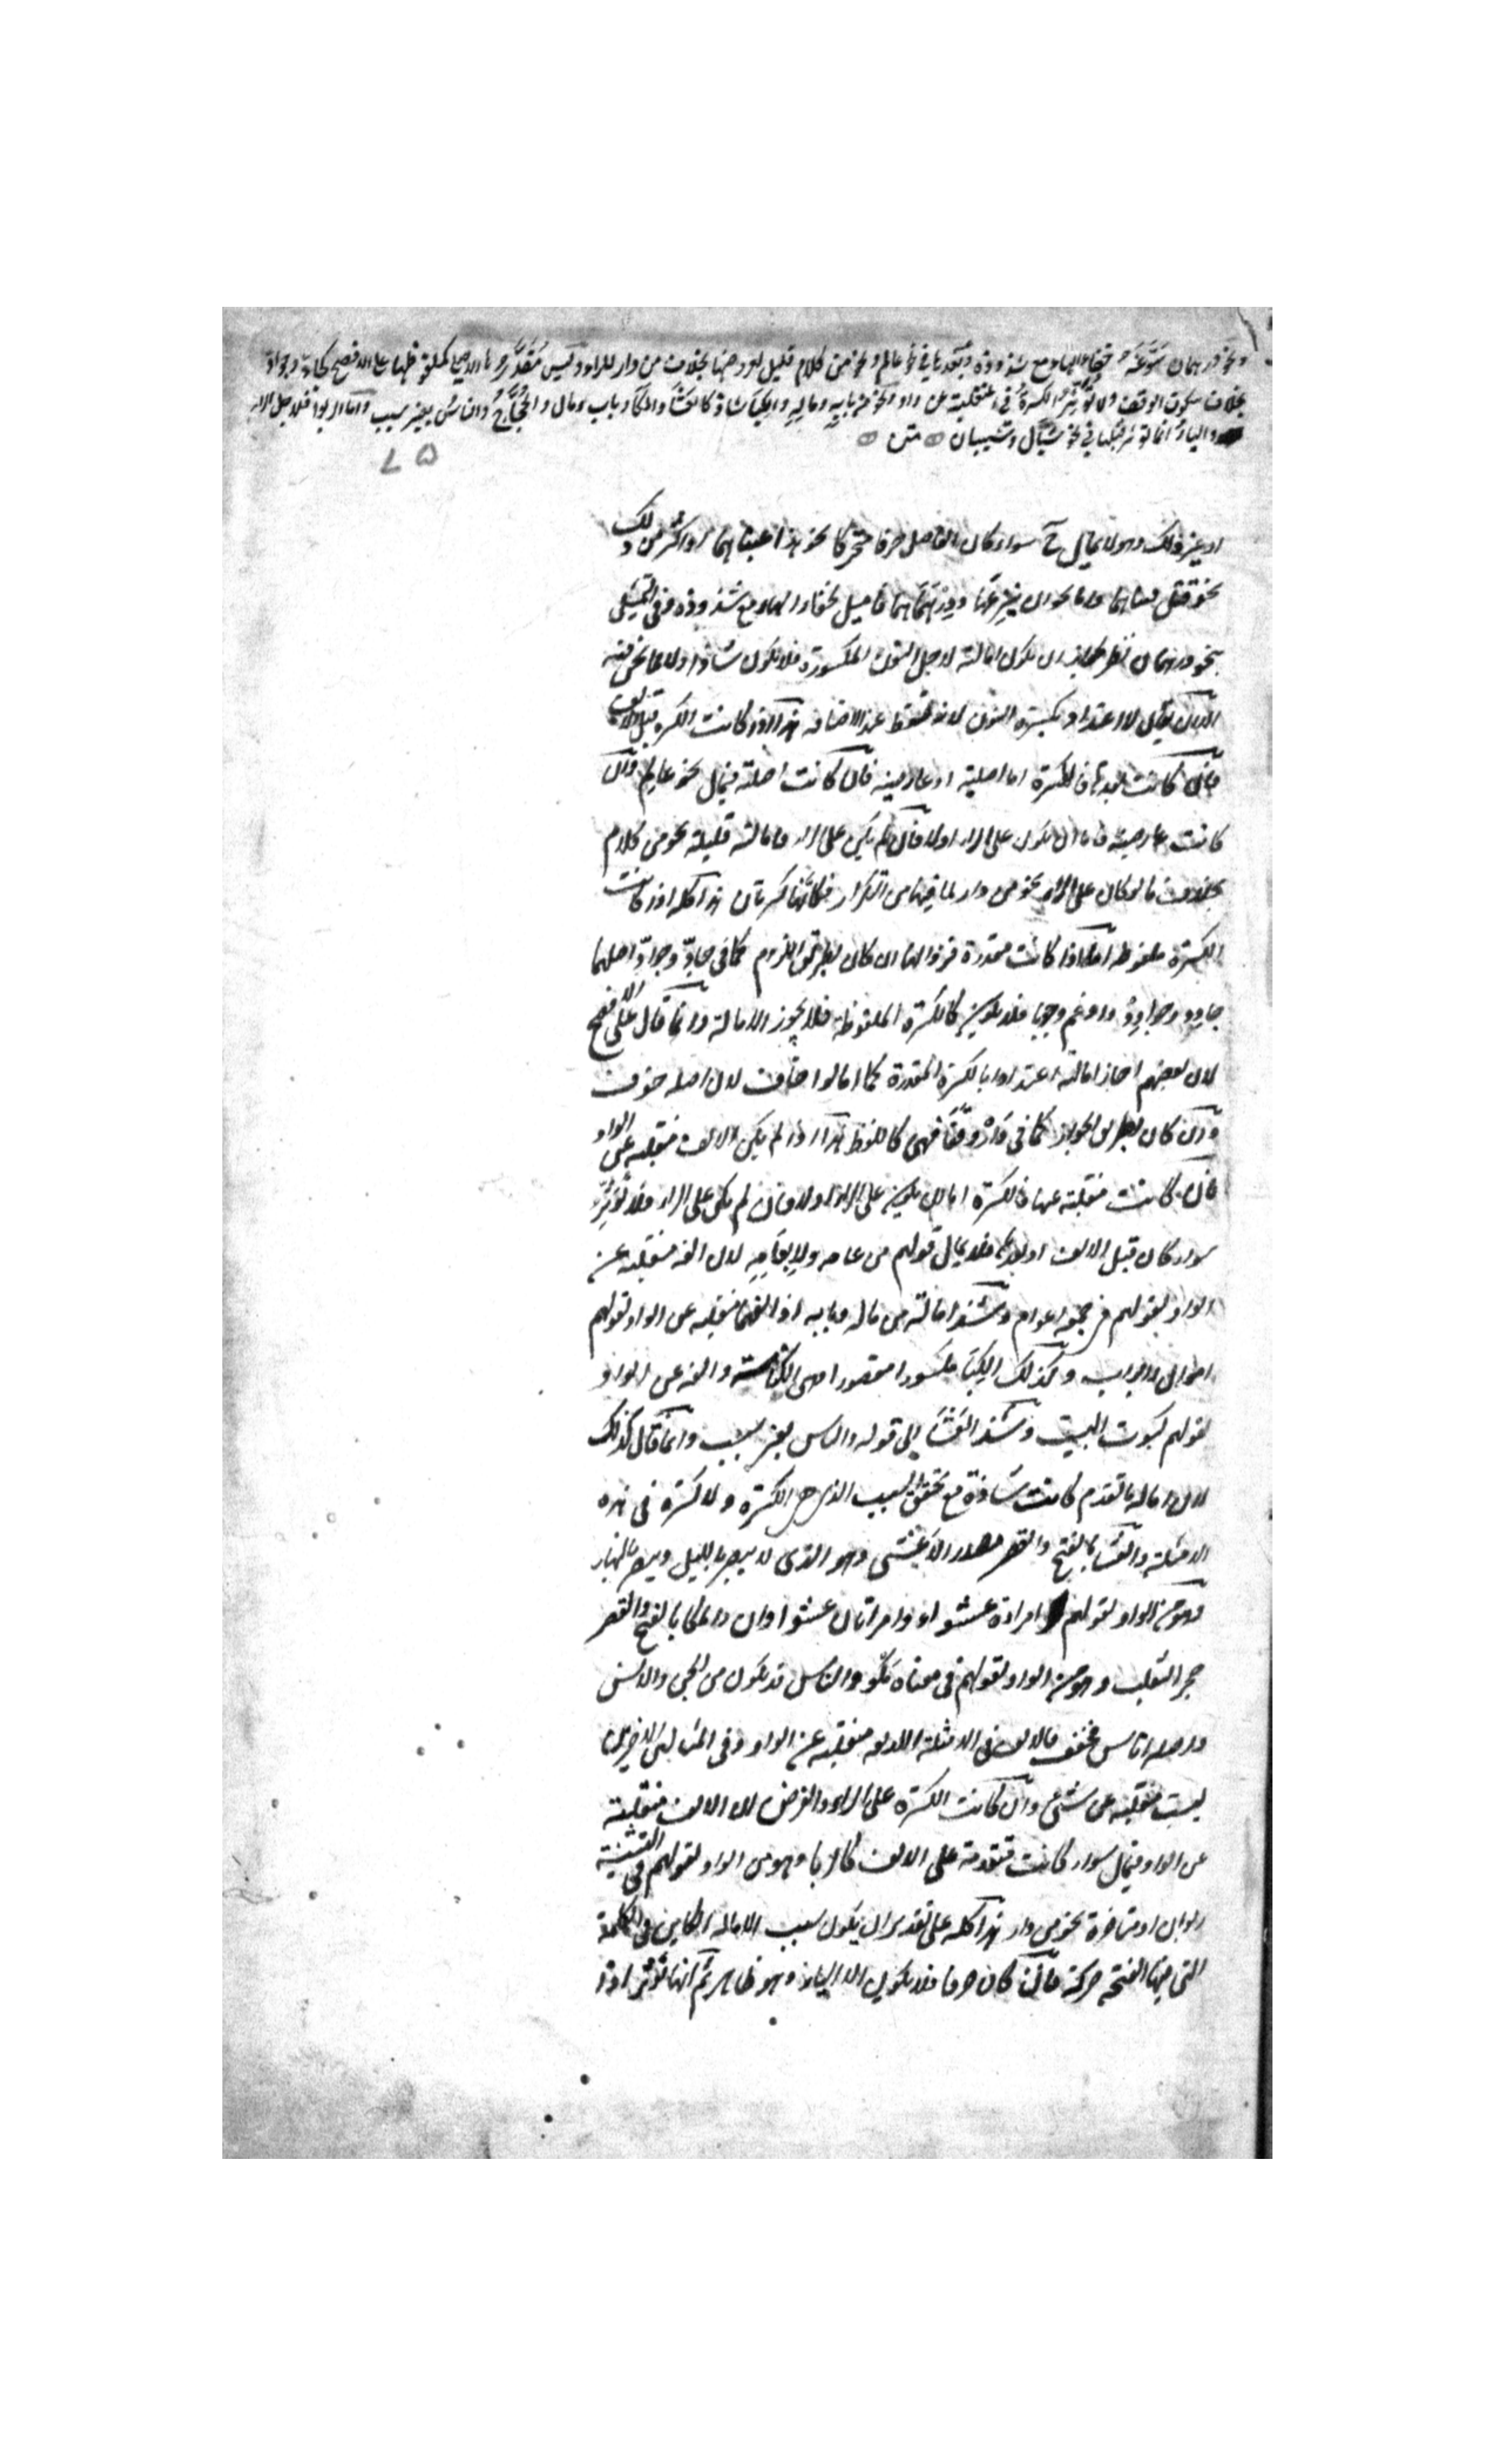 ونحو درهمان سوغه خفاء الهاء مع شذوذه وبعدها في نحو عالم ونحو من كلام قليل لعروضها بخلاف من دار للراء وليس مقدرها الاصلي كملفوظها على الافصح كجاد وجواد
بخلاف سكون الوقف ولا تؤثر الكسرة في المنقلبة عن واو ونحو من بابه وماله والكبا شاذ كالعشا والمكا وباب ومال والحجاج والناس بغير سبب واما الربوا فلاجل الراء
والياء انما تؤثر قبلها في نحو سيال وشيبان متن
او غير ذلك وهو لا يمال سواء كان الفاصل حرفا متحركا نحو هذا عنبا هما او اكثر من ذلك
نحو فتل قنبا هما واما نحو ان ينزعها ودرهما هما فاميل لخفاء الهاء مع شذوذه وفي التمثيل
بنحو درهمان نظر لجواز ان يكون امالته لاجل النون المكسورة فلا يكون شاذا ولا مما نحن فيه
اللهم ان يقال لا اعتداد بكسرة النون لانه تسقط عند الاضافه هذا اذا كانت الكسرة قبل الالف
فان كانت بعدها فالكسرة اما اصلية او عارضيه فان كانت اصلية فيمال نحو عالم وان
كانت عارضية فاما ان يكون على الراء اولا فان لم يكن على الراء فامالته قليلة نحو من كلام
بخلاف ما لو كان على الراء نحو من دار لما فيها من التكرار فكانها كسرتان هذا كله اذا كانت
الكسرة ملفوظه اما اذا كانت مقدرة فزوالها ان كان بطريق اللزوم كما في جاد وجواد اصلهما
جادد وجوادد وادغم وجوبا فلا يكون كالكسرة الملفوظة فلا يجوز الامالة وانما قال على الافصح
لان بعضهم اجاز امالته اعتدادا بالكسرة المقدرة كما امالوا خاف لان اصله خوف
وان كان بطريق الجواز كما في دار وقفا فهي كالملفوظ هذا اذا لم يكن الالف منقلبه عن الواو
فان كانت منقلبة عنها فالكسرة اما ان يكون على الراء اولا فان لم يكن على الراء فلا تؤثر
سواء كان قبل الالف او بعدها فلا يمال قولهم من عامه ولا بقامه لان الفه منقلبه عن
الواو لقولهم في جمعه اعوام وشذ امالة من ماله وبابه اذ الفهما منقلبه عن الواو لقولهم
اموال وابواب وكذلك الكبا مكسورا مقصورا وهي الكناسة والفه عن الواو
لقولهم كبوت البيت وشذ العشا الى قوله والناس بغير سبب وانما قال كذلك
لان امالة ما تقدم كانت شاذة مع تحقق السبب الذي هو الكسرة ولا كسرة في هذه
الامثلة والعشا بالفتح والقصر مصدر الاعشى وهو الذي لا يبصر بالليل ويبصر بالنهار
وهو من الواو لقولهم امراءة عشواء وامراتان عشواوان والمكا بالفتح والقصر
جحر الثعلب وهو من الواو لقولهم في معناه مكو والناس قد يكون من الجن والانس
واصله اناس مخفف فالالف في الامثلة منقلبه عن الواو وفي المثالين الاخيرين
ليست منقلبه عن شئ وان كانت الكسرة على الراء والفرض ان الالف منقلبة
عن الواو فيمال سواء كانت متقدمة على الالف كالربا وهو من الواو لقولهم في التثنية
ربوان او متاخرة نحو من دار هذا كله على تقدير ان يكون سبب الامالة الكاين في الكلمة
التي فيها الفتحه حركة فان كان حرفا فلا يكون الا الياء وهو ظاهر ثم انها تؤثر اذا